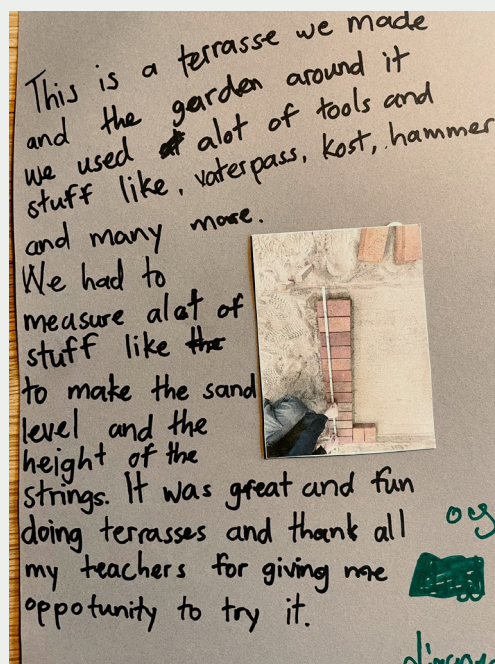 This is a terrasse we made
and the garden around it
we used alot of tools and
stuff like, vaterpass, kost, hammer
and many more.
We had to
measure alot of
stuff like the
to make the sand
level and the
height of the
strings. It was great and fun
doing terrasses and thank all
my teachers for giving me
oppotunity to try it.
og